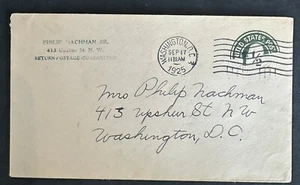 PHILIP NACHMAN JR.
413 Upshur St. N. W.
RETURN POSTAGE GUARANTEED
WASHINGTON, D.C.
SEP 17
11 30 AM
1925
UNITED STATES POSTAGE
Mrs Philip Nachman
413 Upshur St NW
Washington, D.C.